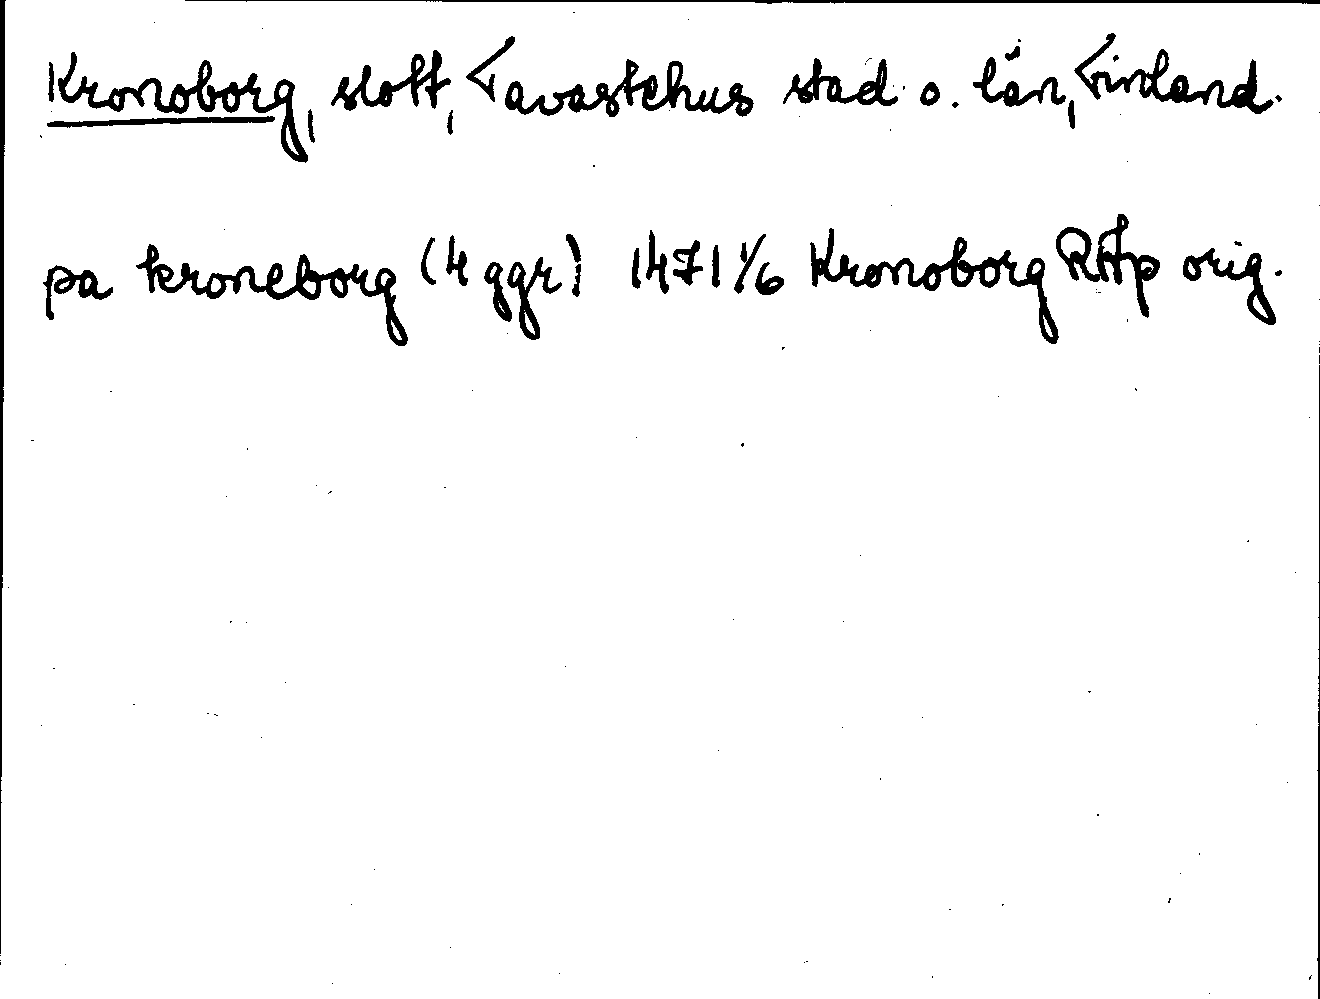 Kronoborg, slott, Tavastehus stad o. län, Finland.
pa kroneborg (4 ggr) 1471 1/6 Kronoborg RAp orig.